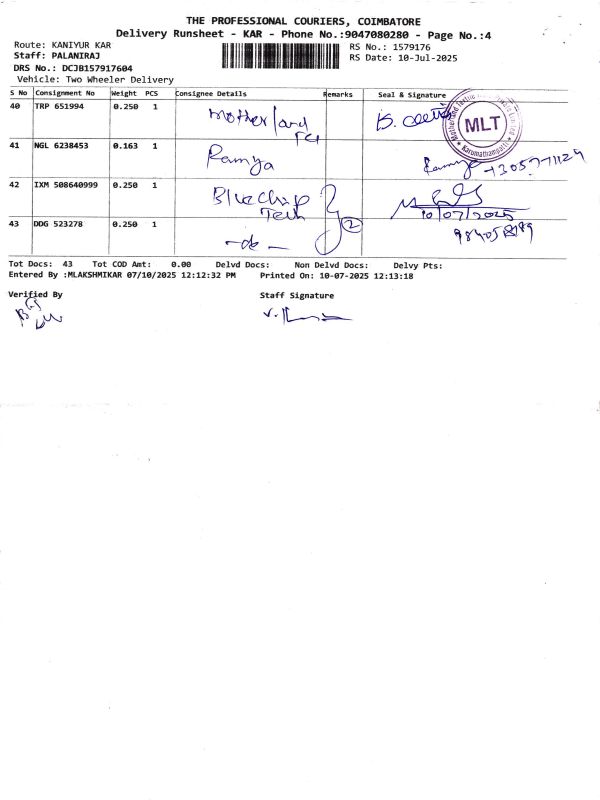 THE PROFESSIONAL COURIERS, COIMBATORE
Delivery Runsheet - KAR - Phone No.:9047080280 - Page No.:4
Route: KANIYUR KAR
Staff: PALANIRAJ
DRS No.: DCJB157917604
Vehicle: Two Wheeler Delivery
RS No.: 1579176
RS Date: 10-Jul-2025
S No Consignment No Weight PCS Consignee Details Remarks Seal & Signature
40 TRP 651994 0.250 1 Motherland
MLT
41 NGL 6238453 0.163 1 Ramya Ramya
42 IXM 508640999 0.250 1 Bluechip
Tech 10/07/2025
43 DDG 523278 0.250 1 -do- 2
Tot Docs: 43 Tot COD Amt: 0.00 Delvd Docs: Non Delvd Docs: Delvy Pts:
Entered By :MLAKSHMIKAR 07/10/2025 12:12:32 PM Printed On: 10-07-2025 12:13:18
Verified By Staff Signature